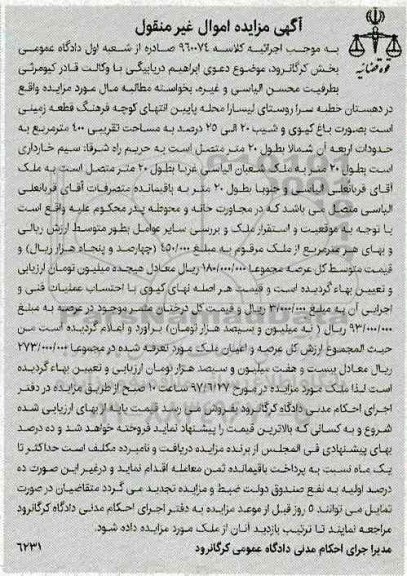 آگهی مزایده اموال غیر منقول
قوه قضائیه
به موجب اجرائیه کلاسه ۹۶۰۰۷۴ صادره از شعبه اول دادگاه عمومی
بخش کرگانرود، موضوع دعوی ابراهیم دریابیگی با وکالت قادر کیومرثی
بطرفیت محسن الیاسی و غیره، بخواسته مطالبه مال مورد مزایده واقع
در دهستان خطبه سرا روستای لیسارا محله پایین انتهای کوچه فرهنگ قطعه زمینی
است بصورت باغ کیوی و شیب ۲۰ الی ۲۵ درصد به مساحت تقریبی ۴۰۰ مترمربع به
حدودات اربعه آن شمالا بطول ۲۰ متر متصل است به حریم راه شرقا: سیم خارداری
است بطول ۲۰ متر به ملک شعبان الیاسی غربا بطول ۲۰ متر متصل است به ملک
آقای قربانعلی الیاسی و جنوبا بطول ۲۰ متر به باقیمانده متصرفات آقای قربانعلی
الیاسی متصل می باشد که در مجاورت خانه و محوطه پدر محکوم علیه واقع است
با توجه به موقعیت و استقرار ملک و بررسی سایر عوامل بطور متوسط ارزش ریالی
و بهای هر مترمربع از ملک مرقوم به مبلغ ۴۵۰/۰۰۰ (چهارصد و پنجاه هزار ریال) و
قیمت متوسط کل عرصه مجموعا ۱۸۰/۰۰۰/۰۰۰ ریال معادل هیجده میلیون تومان ارزیابی
و تعیین بهاء گردیده است و قیمت هر اصله نهای کیوی با احتساب عملیات فنی و
اجرایی آن به مبلغ ۳/۰۰۰/۰۰۰ ریال و قیمت کل درختان مثمر موجود در عرصه به مبلغ
۹۳/۰۰۰/۰۰۰ ریال ( نه میلیون و سیصد هزار تومان) براورد و اعلام گردیده است من
حیث المجموع ارزش کل عرصه و اعیان ملک مورد تعرفه شده در مجموعا ۲۷۳/۰۰۰/۰۰۰
ریال معادل بیست و هفت میلیون و سیصد هزار تومان ارزیابی و تعیین بهاء گردیده
است لذا ملک مورد مزایده در مورخ ۹۷/۶/۲۷ ساعت ۱۰ صبح از طریق مزایده در دفتر
اجرای احکام مدنی دادگاه کرگانرود بفروش می رسد قیمت پایه از بهای ارزیابی شده
شروع و به کسانی که بالاترین قیمت را پیشنهاد نماید فروخته خواهد شد و ده درصد
بهای پیشنهادی فی المجلس از برنده مزایده دریافت و نامبرده مکلف است حداکثر تا
یک ماه نسبت به پرداخت باقیمانده ثمن معامله اقدام نماید و درغیر این صورت ده
درصد اولیه به نفع صندوق دولت ضبط و مزایده تجدید می گردد متقاضیان در صورت
تمایل می توانند ۵ روز قبل از موعد مزایده به دفتر اجرای احکام مدنی دادگاه کرگانرود
مراجعه نمایند تا ترتیب بازدید آنان از ملک مورد مزایده داده شود.
مدیرا جرای احکام مدنی دادگاه عمومی کرگانرود
۶۲۳۱